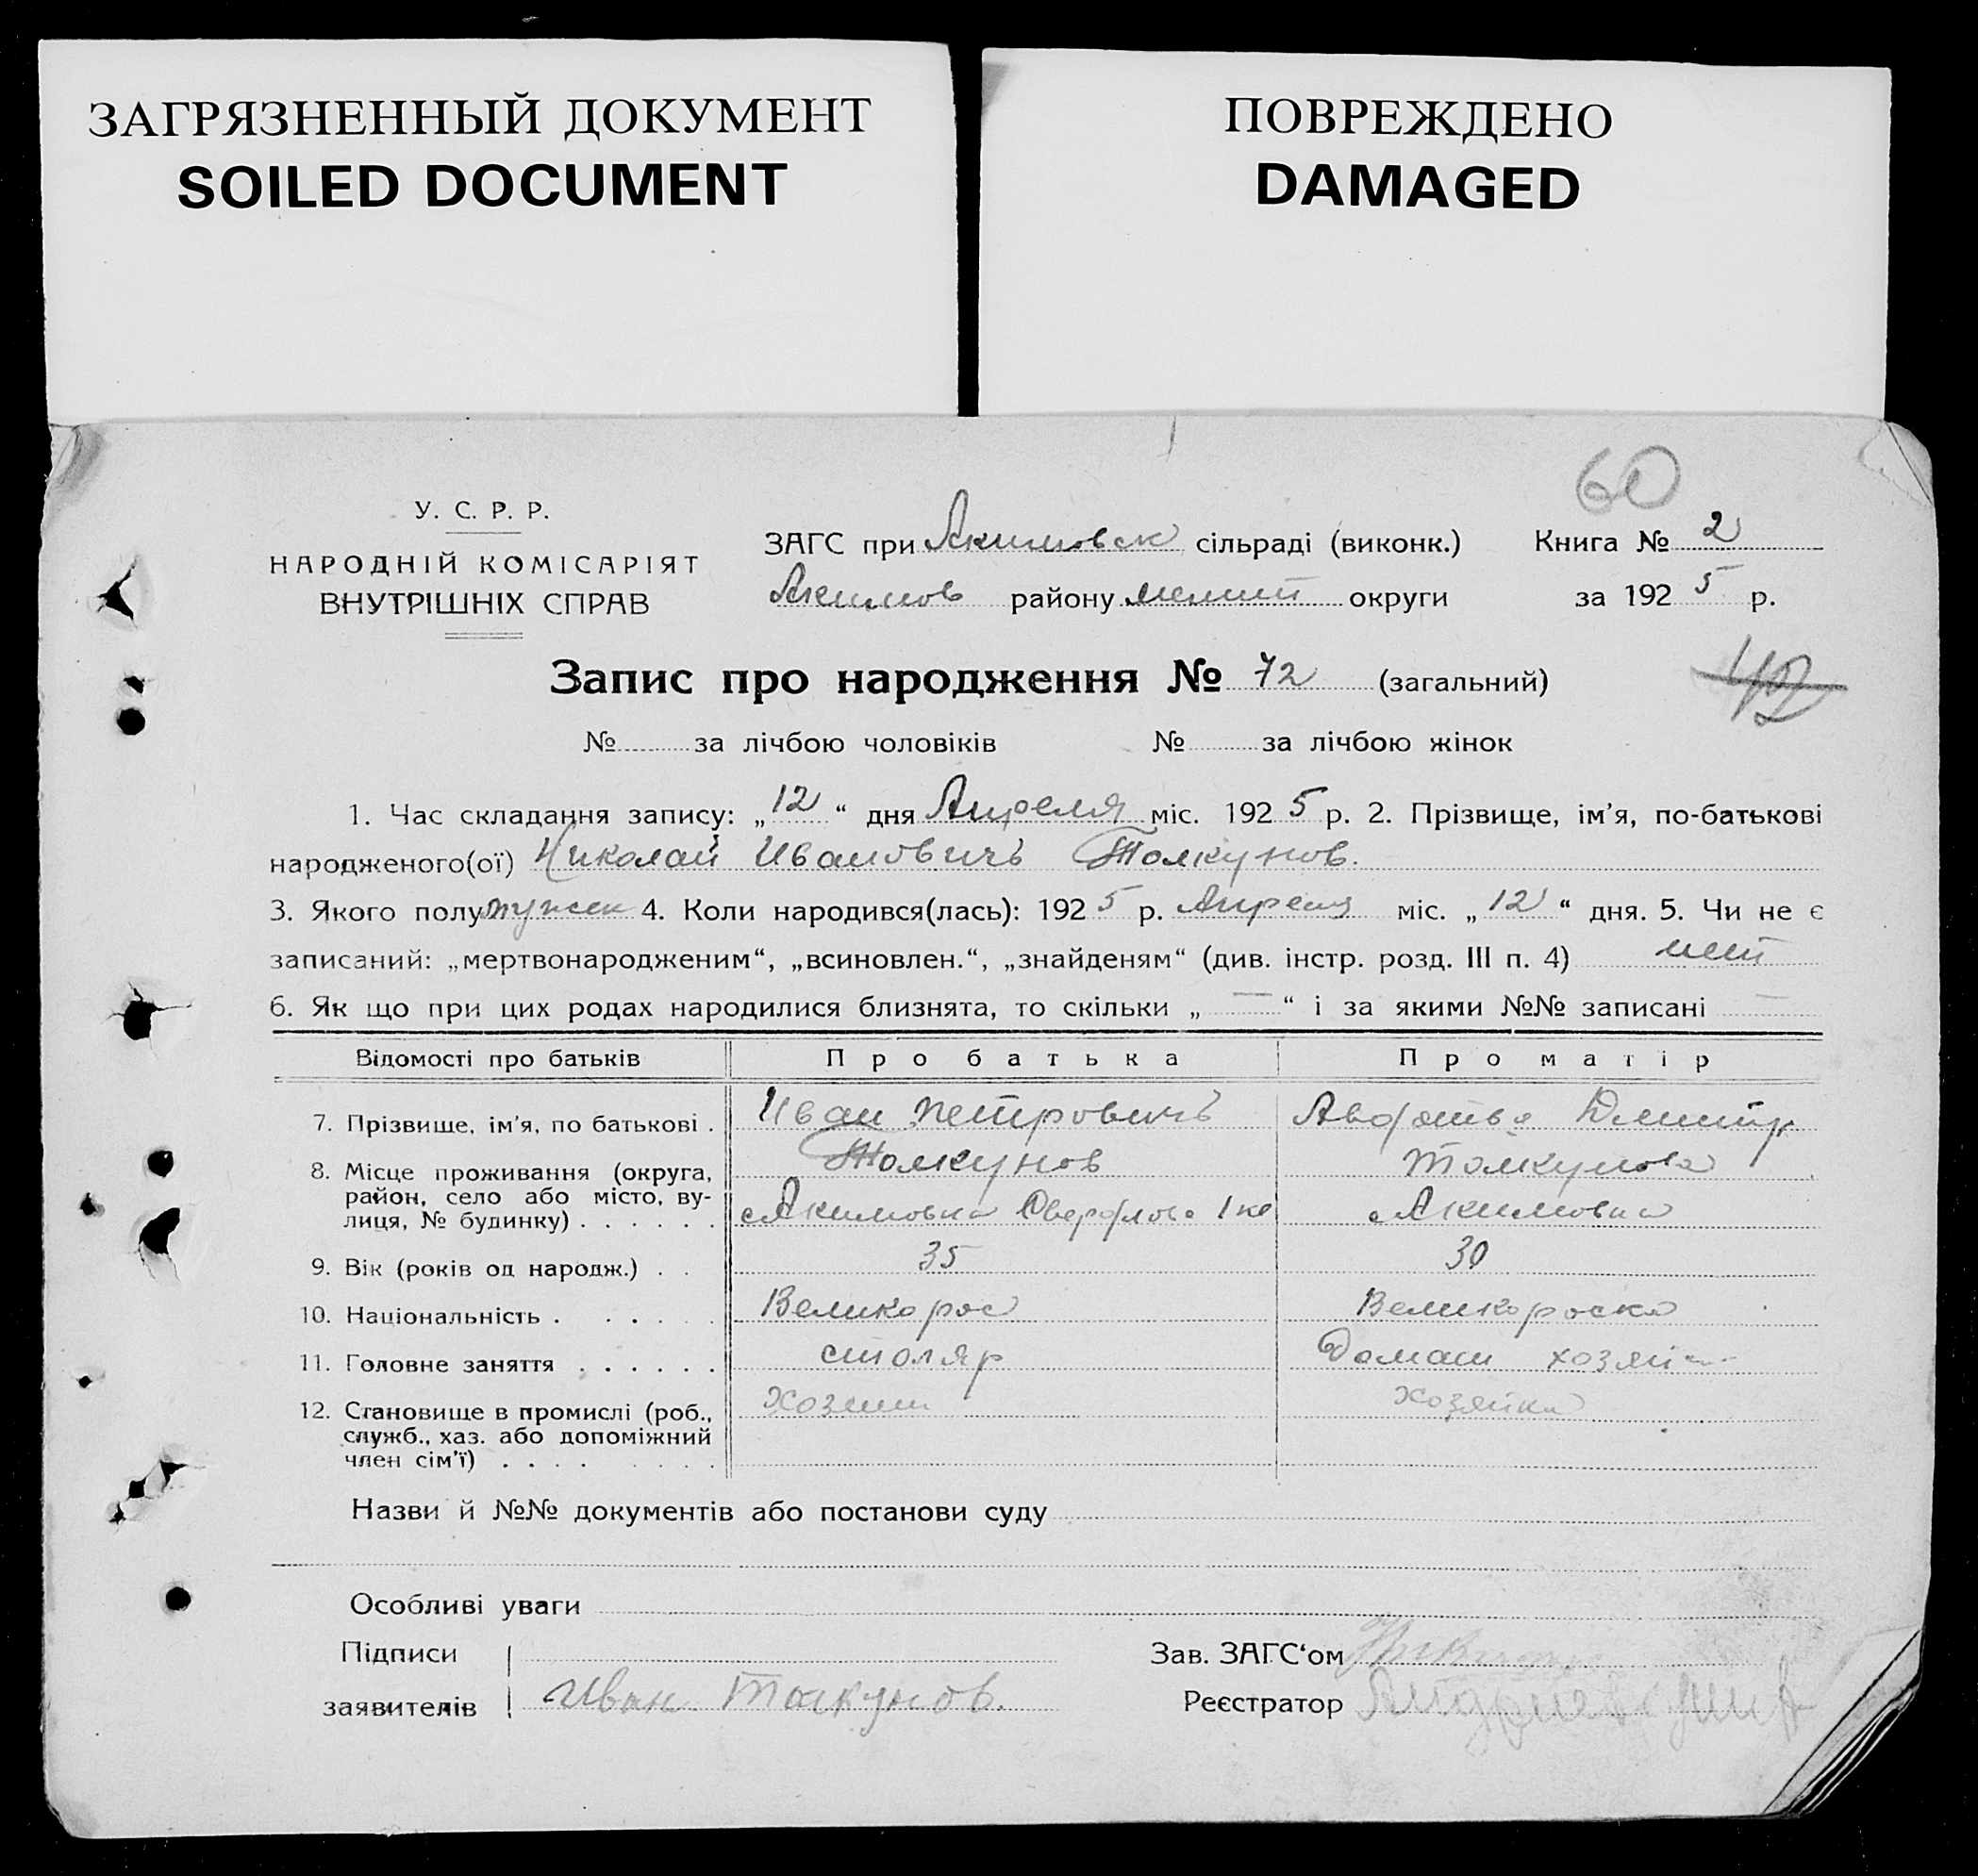 ЗАГРЯЗНЕННЫЙ ДОКУМЕНТ
SOILED DOCUMENT
ПОВРЕЖДЕНО
DAMAGED
60
У. С. Р. Р.
НАРОДНІЙ КОМІСАРІЯТ
ВНУТРІШНІХ СПРАВ
ЗАГС при Акимовск сільраді (виконк.) Книга № 2
Акимов району мелит округи за 1925 р.
Запис про народження № 72 (загальний)
42
№ за лічбою чоловіків № за лічбою жінок
1. Час складання запису: „12“ дня Апреля міс. 1925 р. 2. Прізвище, ім’я, по-батькові
народженого(ої) Николай Ивановичъ Толкунов.
3. Якого полу мужск 4. Коли народився(лась): 1925 р. Апреля міс. „12“ дня. 5. Чи не є
записаний: „мертвонародженим“, „всиновлен.“, „знайденям“ (див. інстр. розд. III п. 4) нет
6. Як що при цих родах народилися близнята, то скільки „—“ і за якими №№ записані —
Відомості про батьків Про батька Про матір
7. Прізвище, ім’я, по батькові . Иван Петровичъ Авдотья Дмитр
8. Місце проживання (округа, Толкунов Толкунова
район, село або місто, ву-
лиця, № будинку) . . . . . . Акимовка 1 Акимовка
9. Вік (років од народж.) . . 35 30
10. Національність . . . . . Великорос Великороска
11. Головне заняття . . . . . . столяр Домаш хозяй
12. Становище в промислі (роб., Хозяин Хозяйка
служб., хаз. або допоміжний
член сім’ї) . . . . . . . .
Назви й №№ документів або постанови суду
Особливі уваги
Підписи Зав. ЗАГС‘ом
заявителів Иван Толкунов. Реєстратор